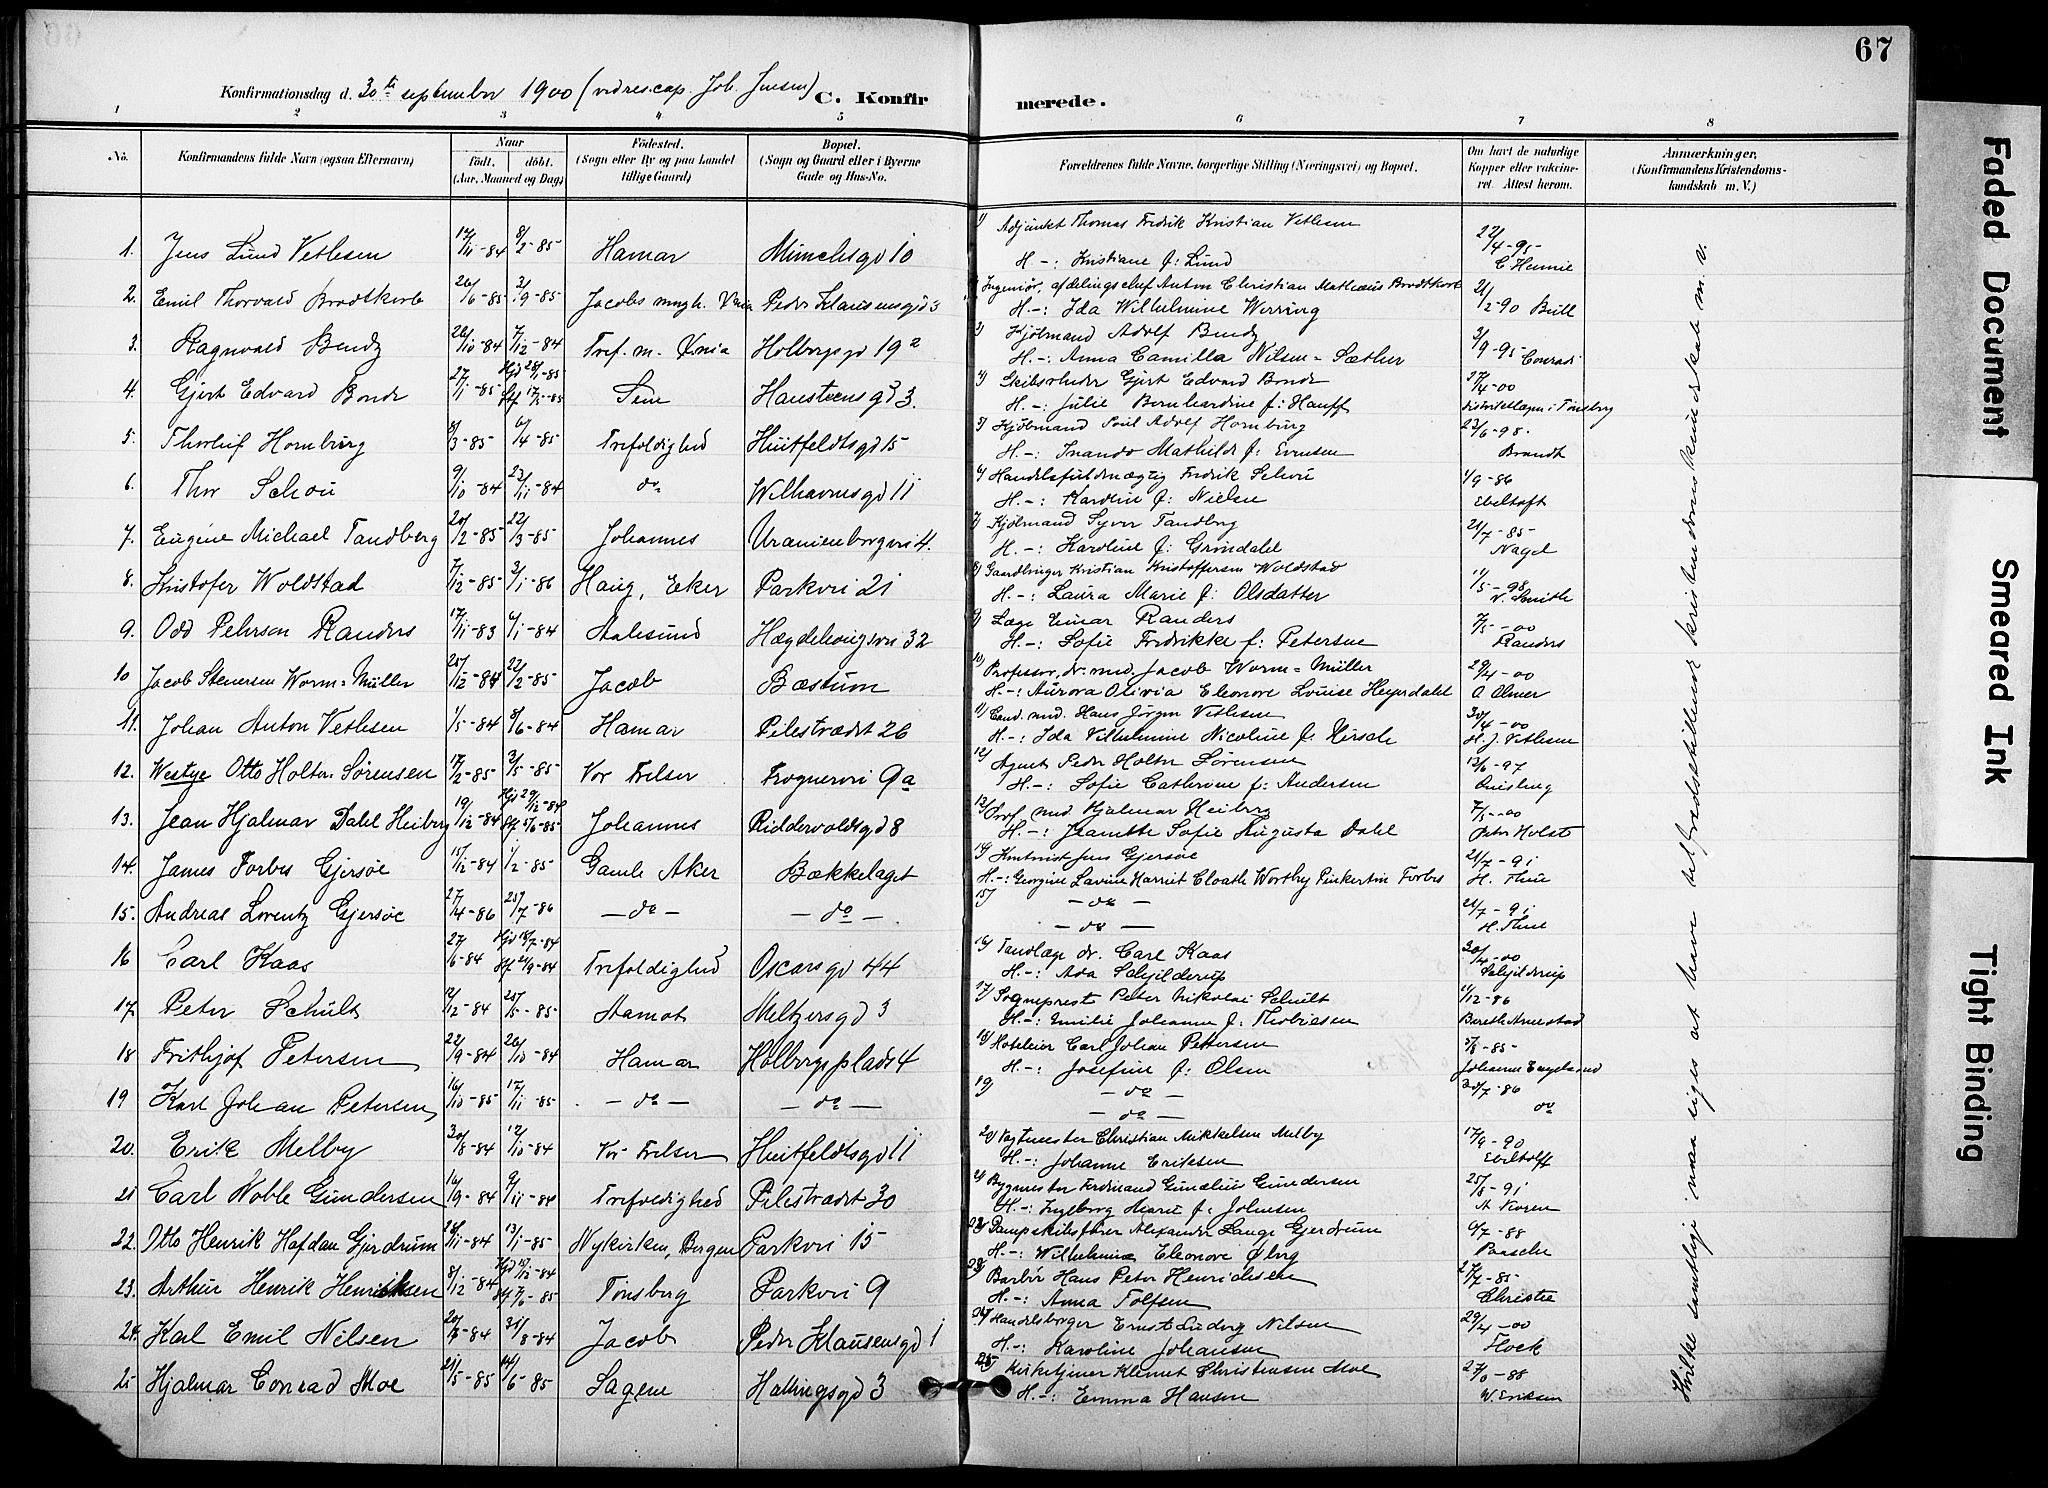 67
Konfirmationsdag d. 30te september 1900 (ved res. cap. Joh. Jensen) C. Konfirmerede.
1 2 3 4 5 6 7 8
No. Konfirmandens fulde Navn (ogsaa Efternavn) Naar födt. döbt. (Aar, Maaned og Dag) Födested. (Sogn eller By og paa Landet tillige Gaard) Bopæl. (Sogn og Gaard eller i Byerne Gade og Hus-No. Forældrenes fulde Navne, borgerlige Stilling (Næringsvei) og Bopæl. Om havt de naturlige Kopper eller vakcineret. Attest herom. Anmærkninger, (Konfirmandens Kristendomskundskab m. V.)
1. Jens Lund Vetlesen 17/11-84 8/2-85 Hamar Munchsgd 10 1) Adjunkt Thomas Fredrik Kristian Vetlesen
H.-: Kristiane f: Lund 22/4-95
2. Emil Thorvald Brodtkorb 26/6-85 Jacobs Peder Klausensgd 3 Ingeniør, afdelingschef Anton Christian Mathæus Brodtkorb
H.-: Ida Wilhelmine Werring 21/2-90 Bull
3. Ragnvald Bendz 26/10-84 7/12-84 Tref. m. Xnia Holbergsgd 19a 3) Kjøbmand Adolf Bendz
H.-: Anna Camilla Nilsen-Sæther 3/9-95 Conradi
4. Gjert Edvard Bonde 27/1-85 Hjd 28/1-85 Stf 17/5-85 Sem Hansteensgd 3. 4) Skibsrheder Gjert Edvard Bonde
H.-: Julie Bernhardine f: Hauff 27/4-00 distriktslægen i Tønsberg
5. Thorleif Homburg 8/3-85 6/4-85 Trefoldighed Huitfeldtsgd 15 5) Kjøbmand Poul Adolf Homburg
H.-: Mathilde f: Evensen 23/6-98. Brandt
6. Thor Schou 9/10-84 23/11-84 do Wilhavnsgd 11 6) Handelsfuldmægtig Fredrik Schou
H.-: Karoline f: Nielsen 1/9-86 Ebeltoft
7. Eugéne Michael Tandberg 20/2-85 22/3-85 Johannes Uranienborgvei 4. 7) Kjøbmand Syver Tandberg
H.-: Karoline f: Grøndahl 21/7-85 Nagel
8. Kristofer Woldstad 7/12-85 3/1-86 Haug, Eker Parkvei 21 8) Gaardbruger Kristian Kristoffersen Woldstad
H.-: Laura Marie f: Olsdatter 11/5-98 N. Smith
9. Odd Peterson Randers 17/11-83 6/1-84 Aalesund Hægdehougsvei 32 9) Læge Einar Randers
H.-: Sofie Fredrikke f: Petersen 7/5-00 Randers
10 Jacob Stenersen Worm-Müller 25/12-84 22/2-85 Jacob Bæstum 10) Professor, dr. med. Jacob Worm-Müller
H.-: Aurora Olivia Eleonore Louise Heyerdahl 29/4-00
11. Johan Anton Vetlesen 1/5-84 8/6-84 Hamar Pilestrædet 26 11) Cand. med. Hans Jørgen Vetlesen
H.-: Ida Vilhelmine Nicoline f. Hirsch 30/4-00 H. J. Vetlesen
12. Westye Otto Holter Sørensen 17/2-85 3/5-85 Vor Frelser Frognervei 9a 12) Agent Peder Holter Sørensen
H.-: Sofie Cathrine f: Andersen 13/6-97 Quisling
13. Jean Hjalmar Dahl Heiberg 19/12-84 Hjd 29/12-84 Stf 5/6-85 Johannes Riddervoldsgd 8 13) Prof. med Hjalmar Heiberg
H.-: Jeanette Sofie Augusta Dahl 7/5-00 Peter Holst
14. James Forbes Gjersøe 15/12-84 1/2-85 Gamle Aker Bækkelaget 14) Jens Gjersøe
H.-: Georgine Lavine Harriet Cloath Worthy Pinkerton Forbes 21/7-91 H. Thue
15. Andreas Lorentz Gjersøe 27/4-86 25/7-86 -do- -do- 15) -do-
-do- 21/7-91 H. Thue
16 Carl Kaas 27/6-84 Hjd 18/7-84 Stf 21/9-84 Trefoldighed Oscarsgd 44 16) Tandlæge dr. Carl Kaas
H.-: Ada Schjelderup 30/4-00 Schjelderup
17. Peter Schult 12/12-84 25/5-85 Aamot Meltzersgd 3 17) Sogneprest Peter Nikolai Schult
H.-: Emilie Johanne f: Thobiesen 11/12-86
18 Frithjof Petersen 22/9-84 26/10-84 Hamar Holbergsplads 4 18) Hoteleier Carl Johan Pettersen
H.-: Josefine f: Olsen 5/8-85- Johanne Engelsrud
19 Karl Johan Petersen 16/10-85 17/11-85 -do- -do- 19) -do-
-do- 30/7-86 do
20. Erik Melby 30/8-84 12/10-84 Vor Frelser Huitfeldtsgd 11 20) Vagtmester Christian Mikkelsen Melby
H.-: Johanne Eriksen 17/9-90 Ebeltoft
21 Carl Noble Gundersen 16/9-84 9/11-84 Trefoldighed Pilestrædet 30 21) Bygmester Ferdinand Gunelius Gundersen
H.-: Ingeborg Marie f: Johnsen 25/8-91 A Koren
22. Otto Henrik Hafdan Gjerdrum 26/11-84 13/1-85 Nykirken, Bergen Parkvei 15 22) Dampskibsfører Alexander Lange Gjerdrum
H.-: Wilhelmine Eleonore Øberg 6/7-88 Paasche
23. Arthur Henrik Henriksen 8/12-84 Hjd 15/12-84 Stf 7/6-85 Tønsberg Parkvei 9 23) Barbér Hans Peter Henrichsen
H.-: Anna Tolfsen 27/7-85 Christie
24. Karl Emil Nilsen 20/7-84 31/8-84 Jacob Peder Klausensgd 1 24) Handelsborger Ernst Ludvig Nilsen
H.-: Karoline Johansen 29/4-00 Flock
25 Hjalmar Conrad Moe 21/5-85 14/6-85 Sagene Hallingsgd 3 25) Kirketjener Klemet Christensen Moe
H.-: Emma Hansen W. Eriksen
Hvilke samtlige maa siges at have tilfredsstillende kristendomskundskab m. v.
Faded Document
Smeared Ink
Tight Binding